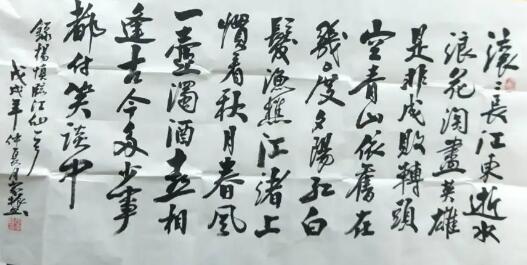 滚々長江東逝水
浪花淘盡英雄
是非成敗轉頭
空青山依舊在
幾度夕陽紅白
髮漁樵江渚上
慣看秋月春風
一壺濁酒喜相
逢古今多少事
都付笑談中
錄楊慎臨江仙
戊戌年